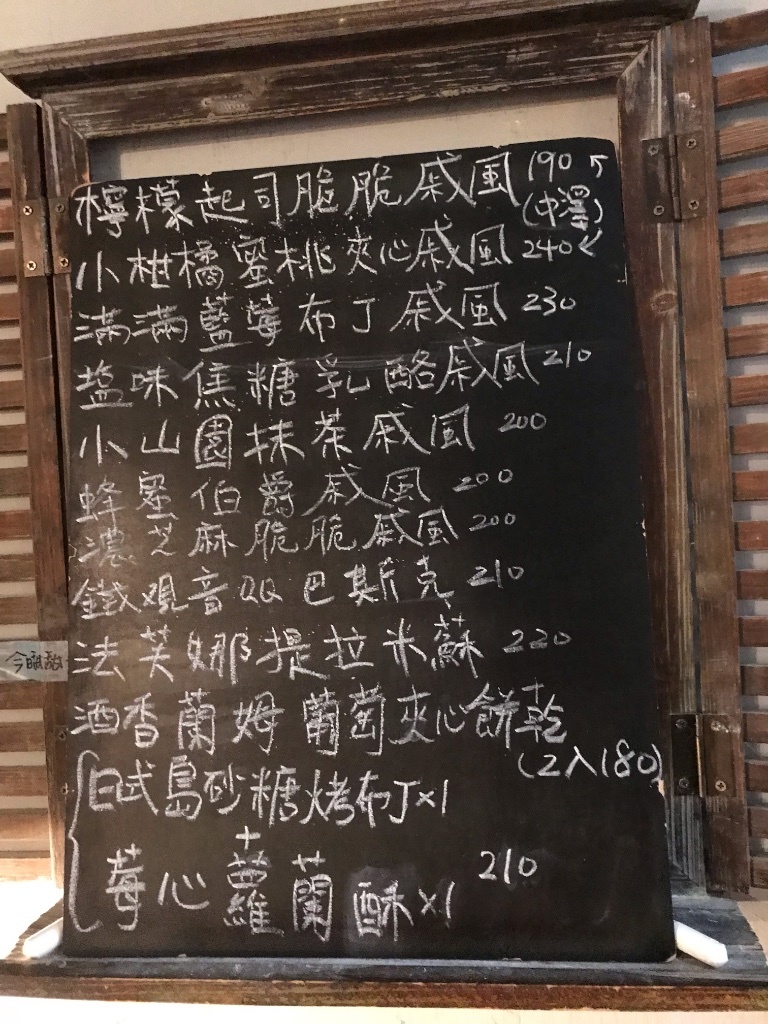 檸檬起司脆脆戚風 190
(中澤)
小柑橘蜜桃夾心戚風 240
滿滿藍莓布丁戚風 230
塩味焦糖乳酪戚風 210
小山園抹茶戚風 200
蜂蜜伯爵戚風 200
濃芝麻脆脆戚風 200
鐵觀音QQ巴斯克 210
法芙娜提拉米蘇 220
酒香蘭姆葡萄夾心餅乾
(2入180)
日式島砂糖烤布丁x1
+
莓心蘿蘭酥x1 210